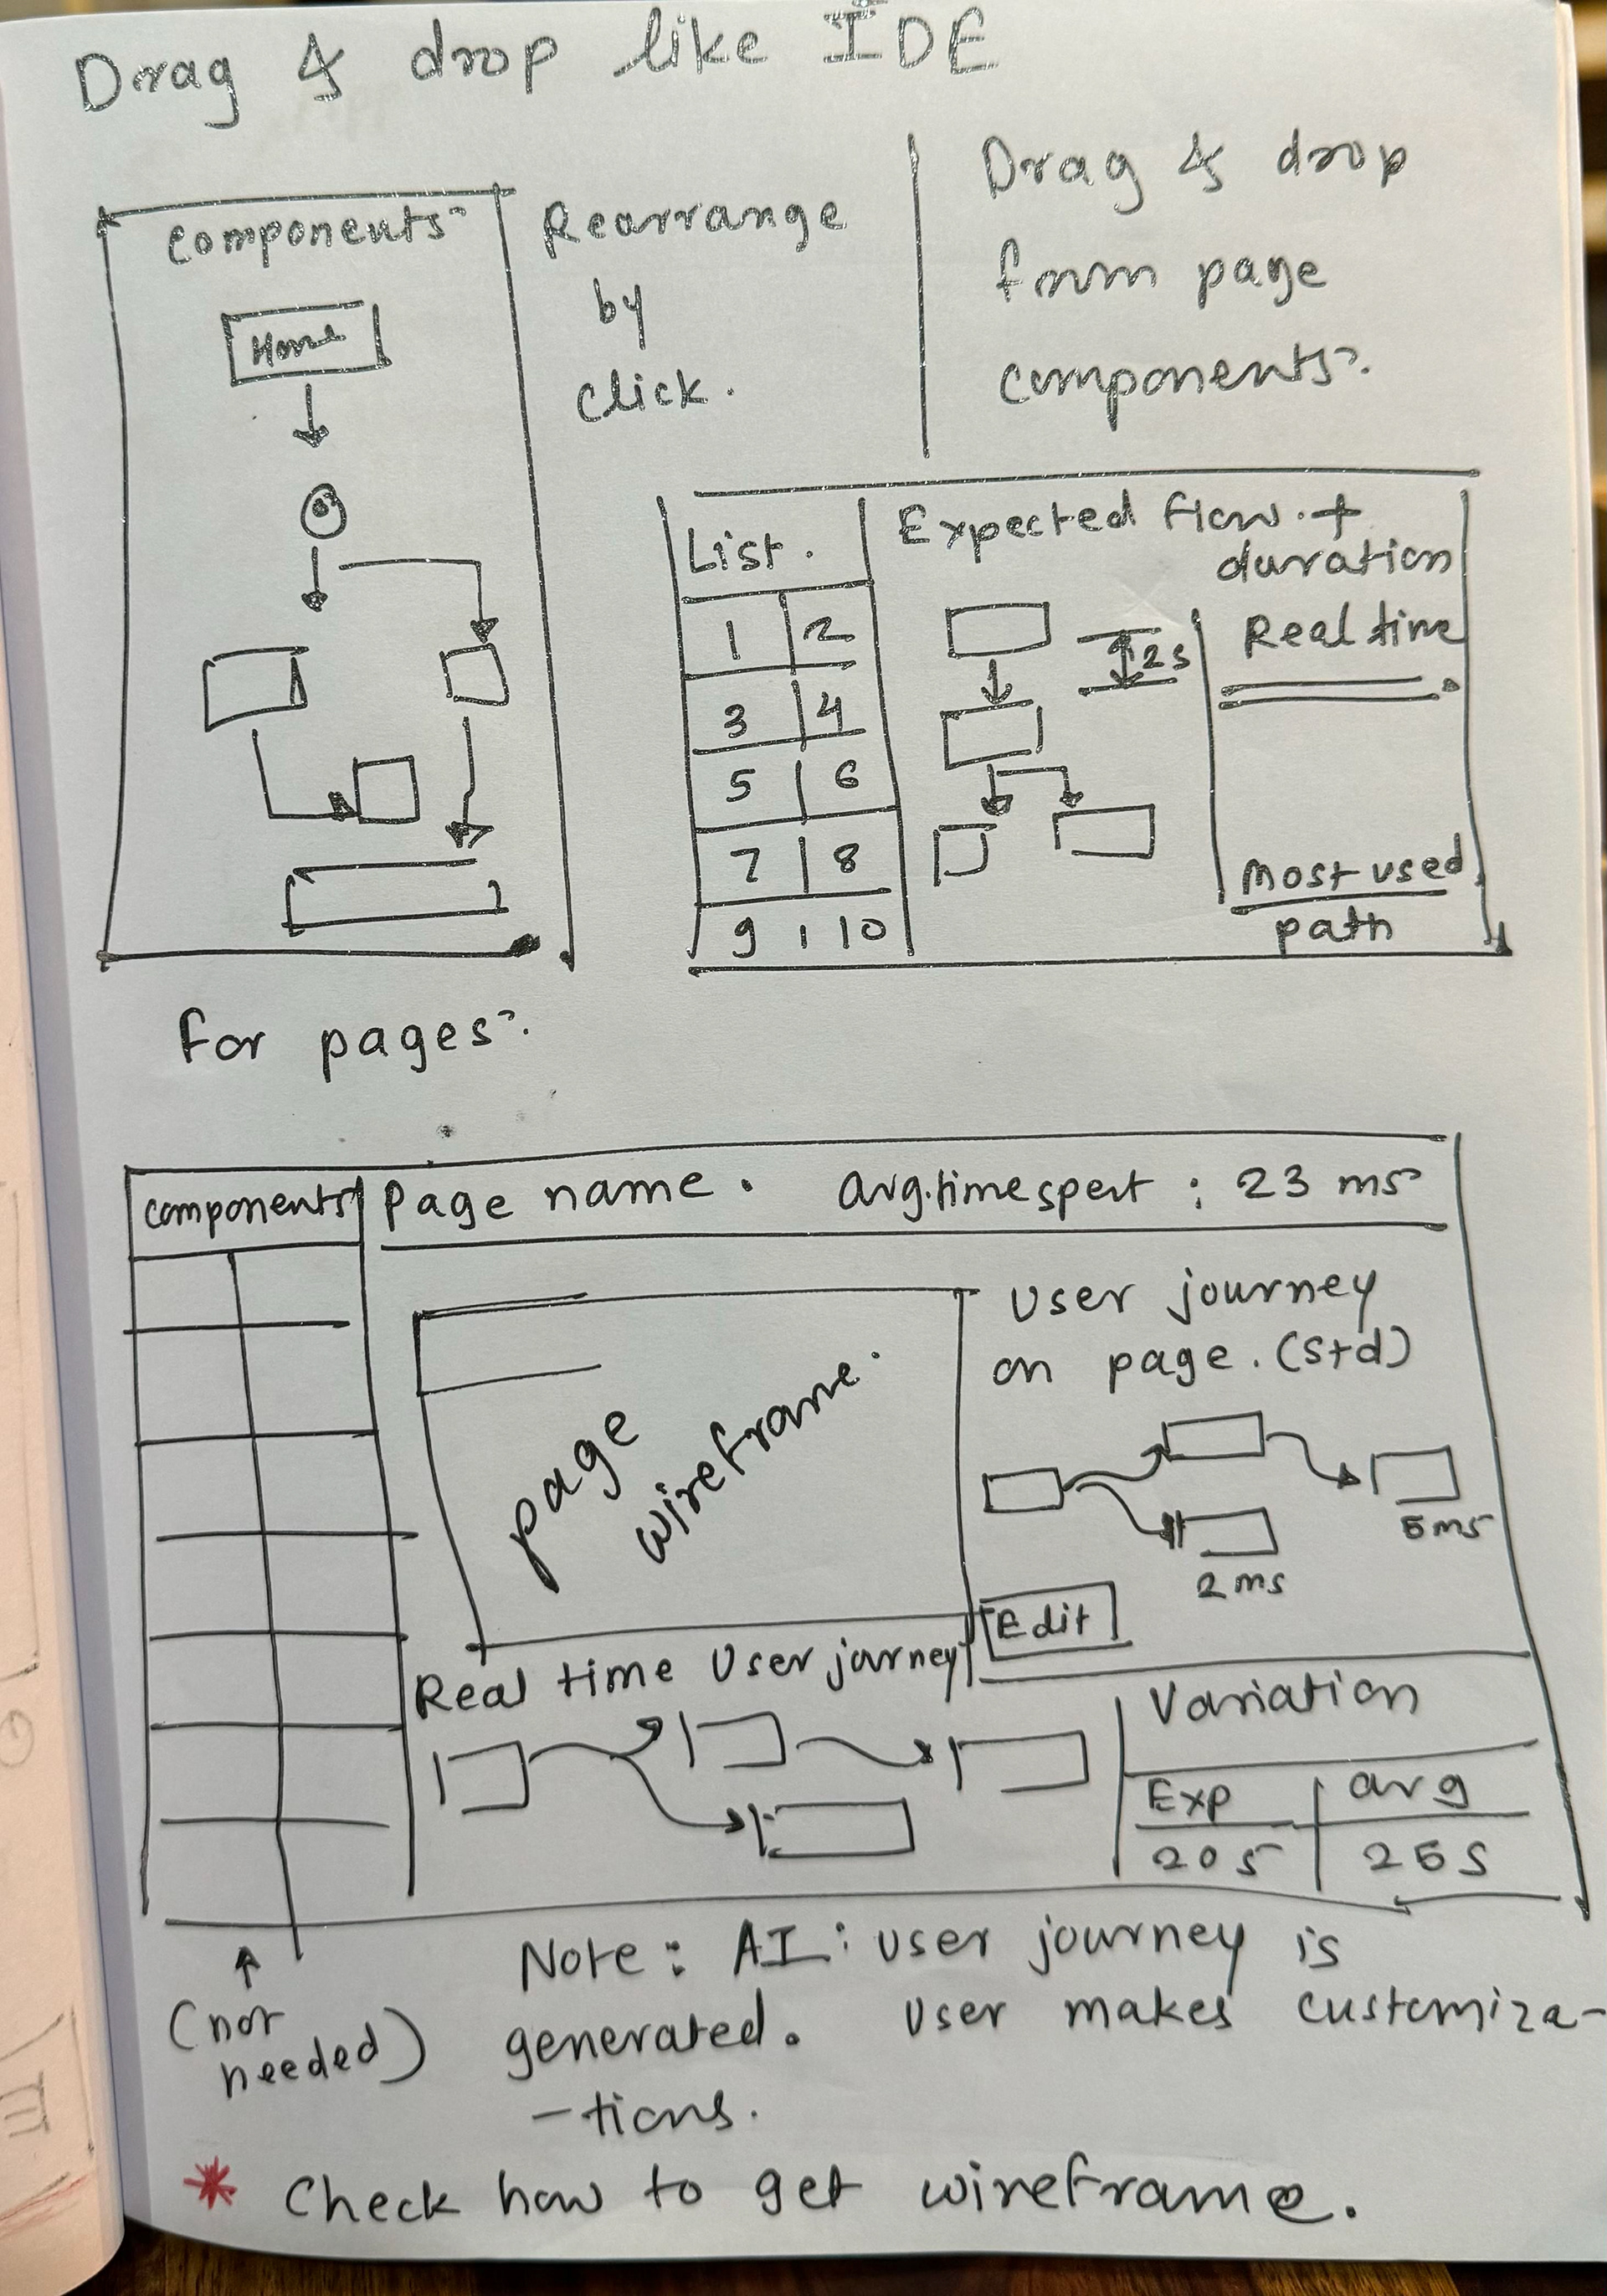 Drag & drop like IDE
Components
Home
Rearrange
by
click.
Drag & drop
from page
components.
List.
1 2
3 4
5 6
7 8
9 10
Expected flow. +
duration
2s
Real time
Most used
path
For pages.
components
Page name. avg.time spent : 23 ms
page
wireframe.
User journey
on page. (std)
5ms
2ms
Edit
Real time User journey
Variation
Exp avg
20s 25s
(not
needed)
Note: AI: user journey is
generated. User makes customiza-
-tions.
* Check how to get wireframe.